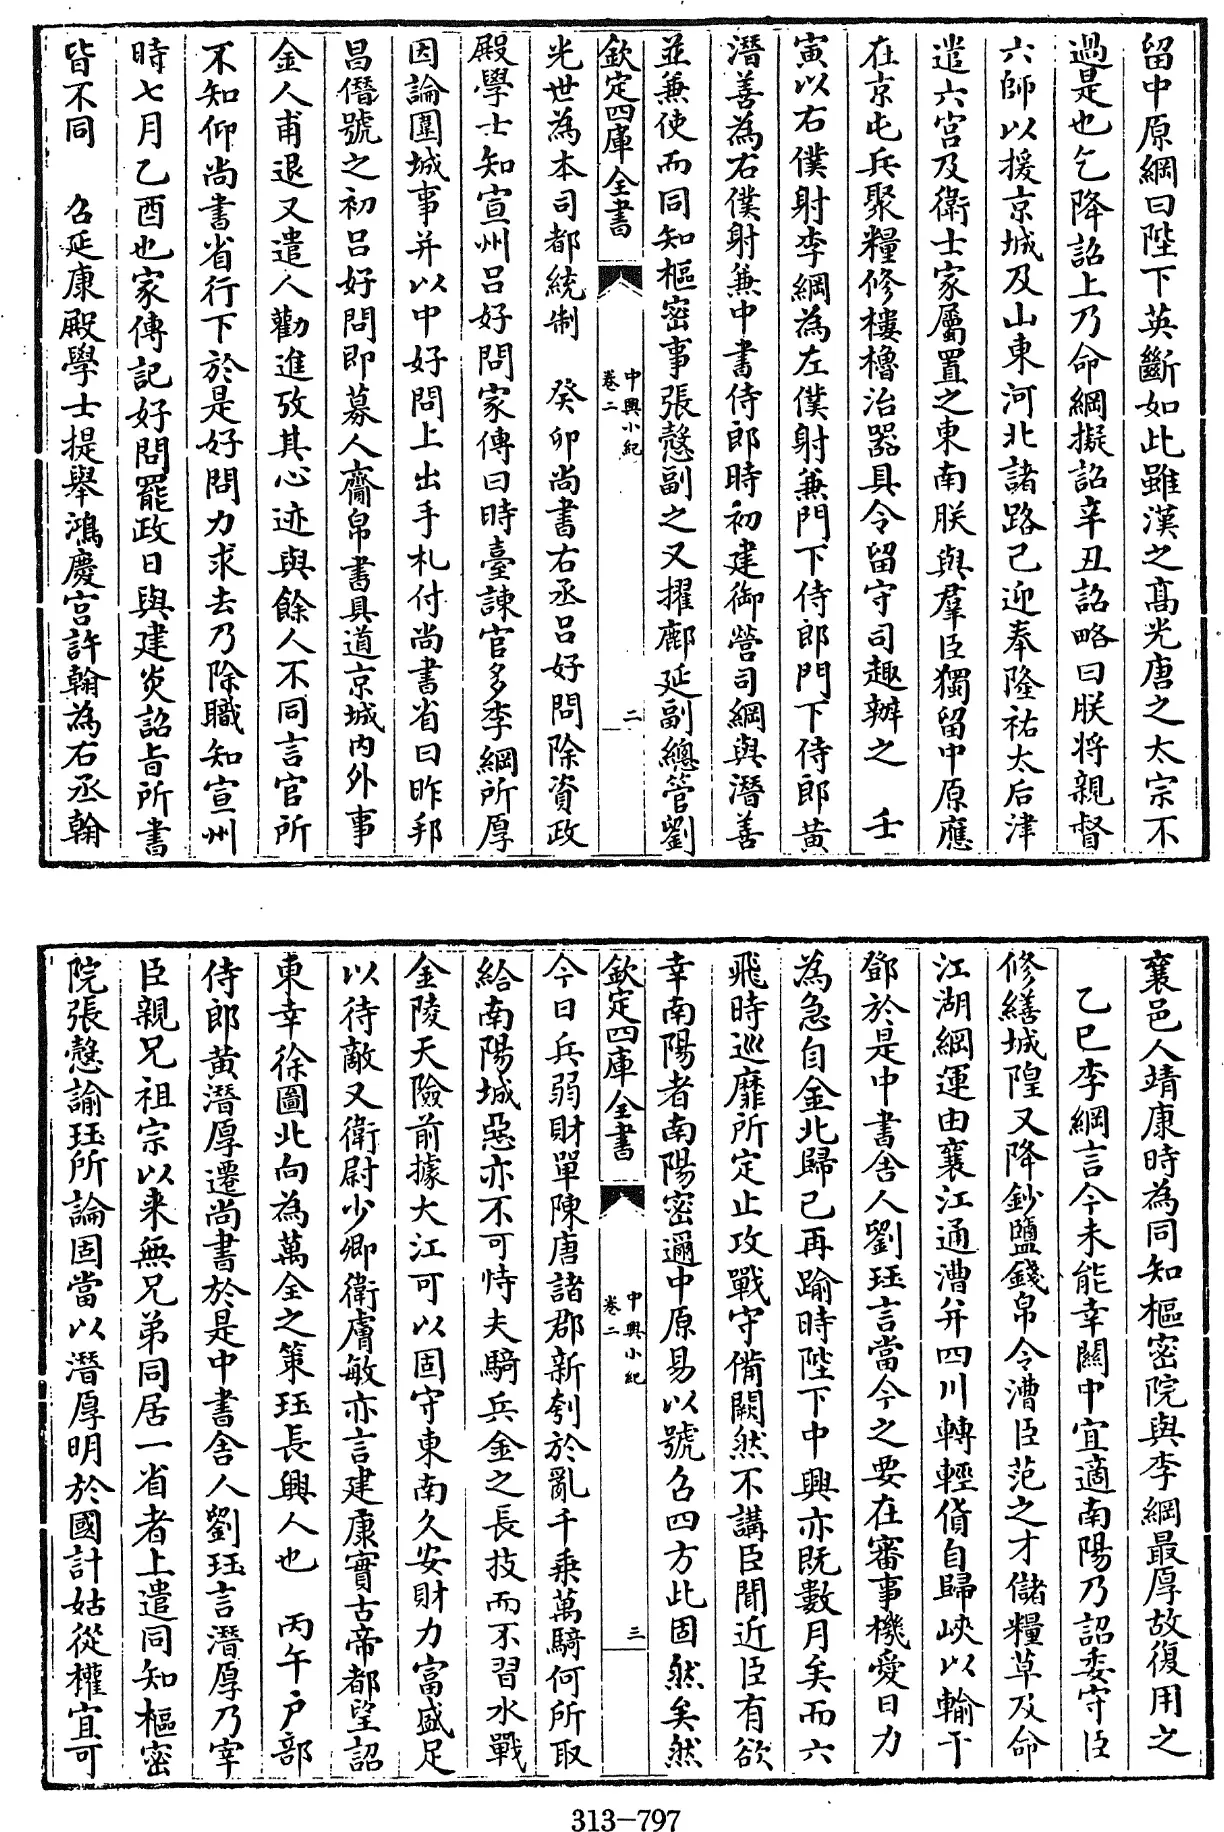 留中原綱曰陛下英斷如此雖漢之高光唐之太宗不
過是也乞降詔上乃命綱擬詔辛丑詔略曰朕将親督
六師以援京城及山東河北諸路已迎奉隆祐太后津
遣六宫及衛士家屬置之東南朕與羣臣獨留中原應
在京屯兵聚糧修樓櫓治器具令留守司趣辦之　壬
寅以右僕射李綱為左僕射兼門下侍郎門下侍郎黄
潛善為右僕射兼中書侍郎時初建御營司綱與潛善
並兼使而同知樞密事張慤副之又擢鄜延副總管劉
欽定四庫全書　中興小紀　卷二　二
光世為本司都統制　癸卯尚書右丞呂好問除資政
殿學士知宣州呂好問家傳曰時臺諫官多李綱所厚
因論圍城事并以中好問上出手札付尚書省曰昨邦
昌僭號之初呂好問即募人齎帛書具道京城内外事
金人甫退又遣人勸進攷其心迹與餘人不同言官所
不知仰尚書省行下於是好問力求去乃除職知宣州
時七月乙酉也家傳記好問罷政日與建炎詔旨所書
皆不同　召延康殿學士提舉鴻慶宫許翰為右丞翰
襄邑人靖康時為同知樞密院與李綱最厚故復用之
乙巳李綱言今未能幸關中宜適南陽乃詔委守臣
修繕城隍又降鈔鹽錢帛令漕臣范之才儲糧草及命
江湖綱運由襄江通漕并四川轉輕貨自歸峽以輸于
鄧於是中書舍人劉珏言當今之要在審事機愛日力
為急自金北歸已再踰時陛下中興亦既數月矣而六
飛時巡靡所定止攻戰守備闕然不講臣聞近臣有欲
幸南陽者南陽密邇中原易以號召四方此固然矣然
欽定四庫全書　中興小紀　卷二　三
今日兵弱財單陳唐諸郡新刳於亂千乘萬騎何所取
給南陽城惡亦不可恃夫騎兵金之長技而不習水戰
金陵天險前據大江可以固守東南久安財力富盛足
以待敵又衛尉少卿衛膚敏亦言建康實古帝都望詔
東幸徐圖北向為萬全之策珏長興人也　丙午户部
侍郎黄潛厚遷尚書於是中書舍人劉珏言潛厚乃宰
臣親兄祖宗以来無兄弟同居一省者上遣同知樞密
院張慤諭珏所論固當以潛厚明於國計姑從權宜可
313-797